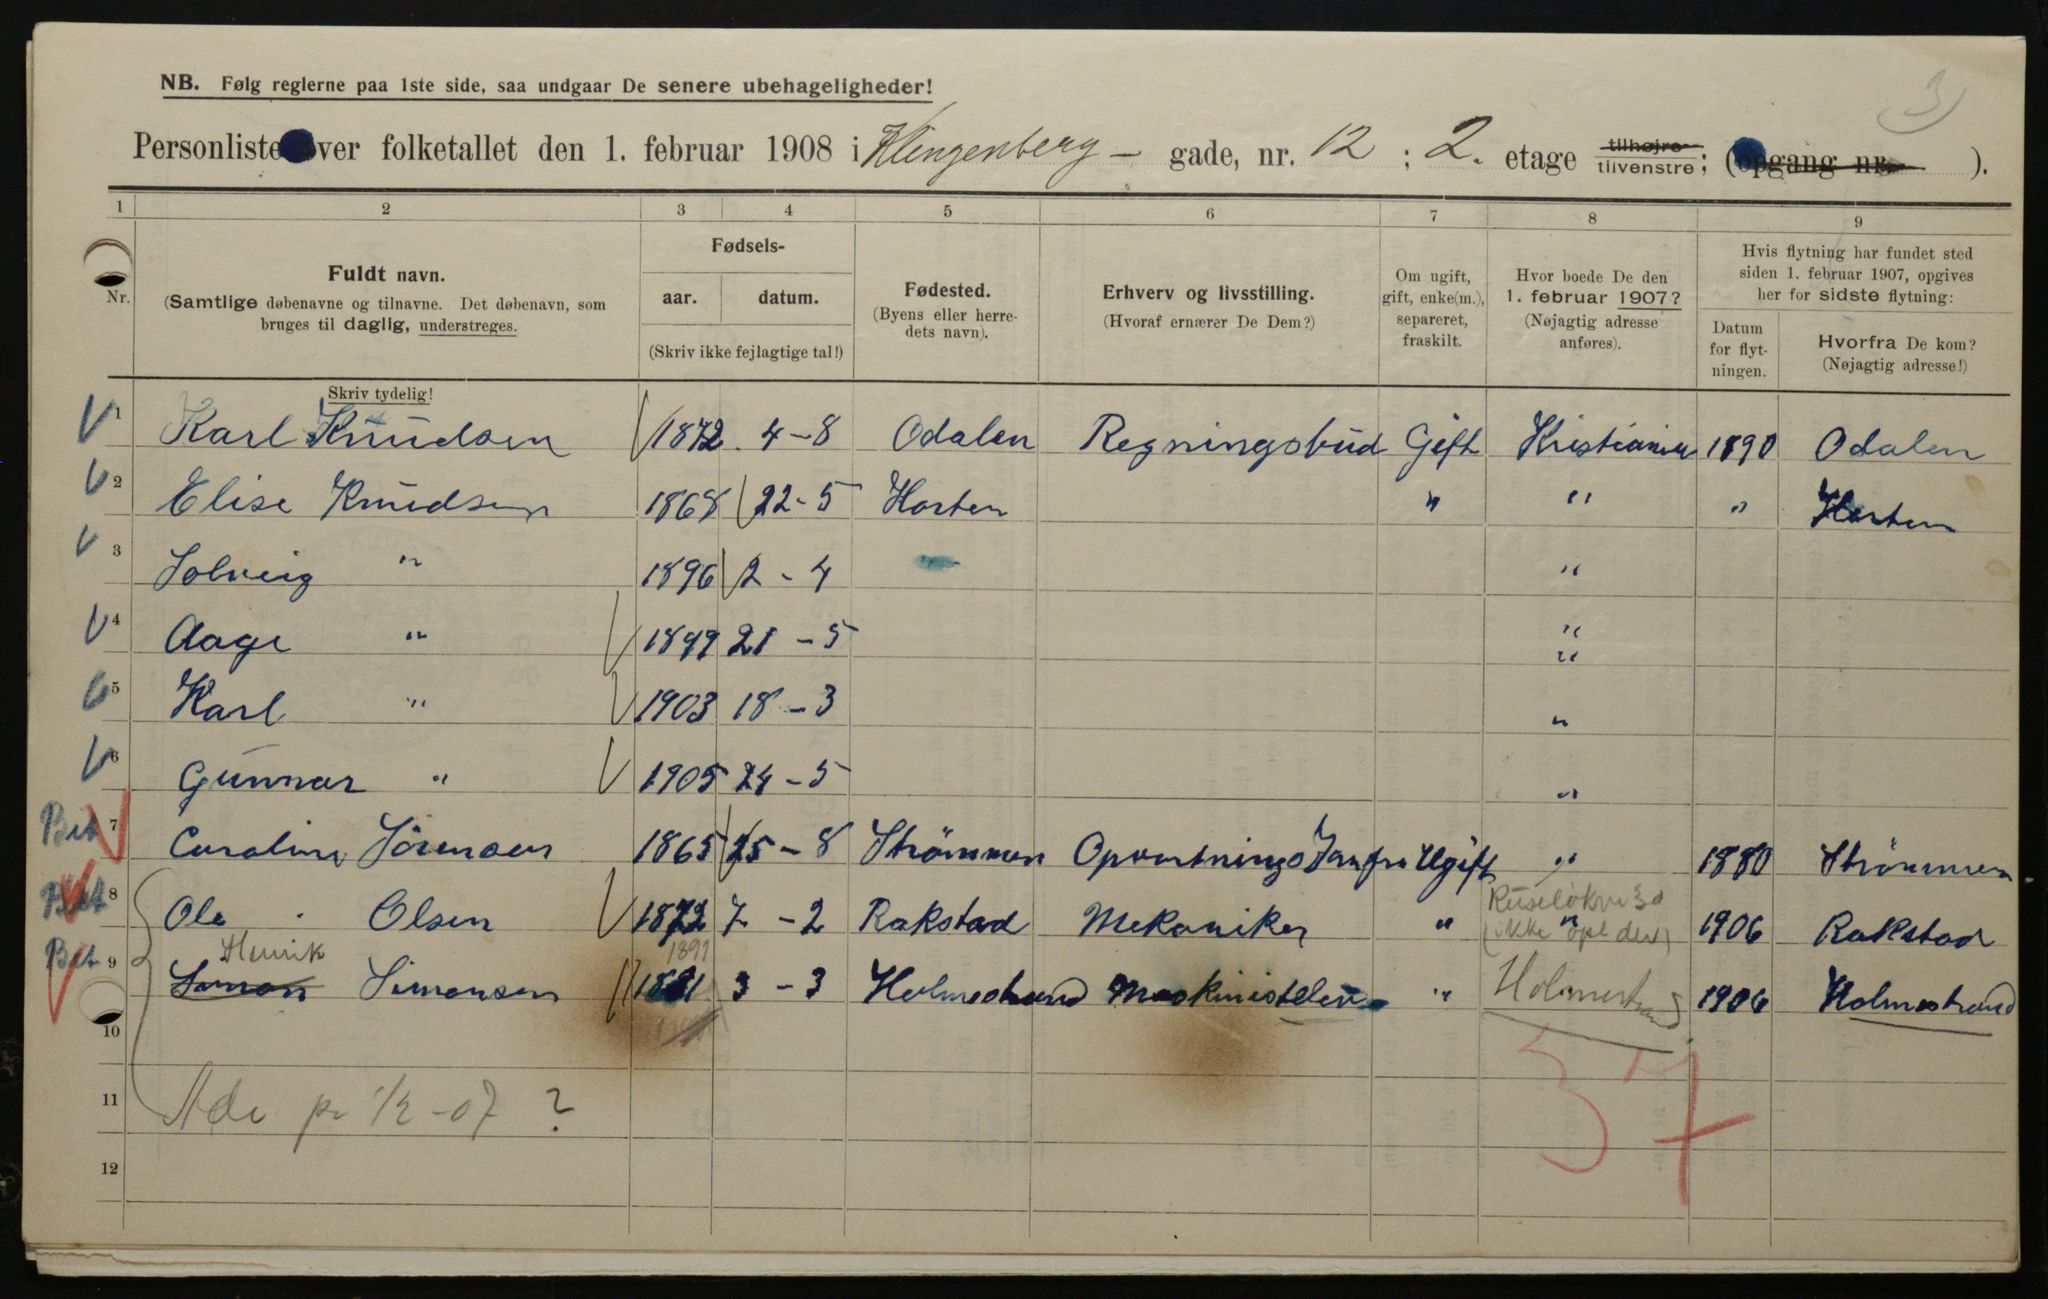 3)
NB. Følg reglerne paa 1ste side, saa undgaar De senere ubehageligheder!
Personliste over folketallet den 1. februar 1908 i Klingenberg – gade, nr. 12 ; 2. etage tilhøjre tilvenstre; (opgang nr. ).
1 2 3 4 5 6 7 8 9
Nr.
Fuldt navn.
(Samtlige døbenavne og tilnavne. Det døbenavn, som
bruges til daglig, understreges.
Fødsels-
aar. datum.
(Skriv ikke fejlagtige tal!)
Fødested.
(Byens eller herre-
dets navn).
Erhverv og livsstilling.
(Hvoraf ernærer De Dem?)
Om ugift,
gift, enke(m.),
separeret,
fraskilt.
Hvor boede De den
1. februar 1907?
(Nøjagtig adresse
anføres).
Hvis flytning har fundet sted
siden 1. februar 1907, opgives
her for sidste flytning:
Datum
for flyt-
ningen.
Hvorfra De kom?
(Nøjagtig adresse!)
Skriv tydelig!
1 Karl Knudsen 1872 4–8 Odalen Regningsbud Gift Kristiania 1890 Odalen
2 Elise Knudsen 1868 22-5 Horten " " " Horten
3 Solveig " 1896 2-4 "
4 Aage " 1899 21-5 "
"
5 Karl " 1903 18-3 "
6 Gunnar " 1905 24-5 "
Bet 7 Caroline Sörensen 1865 25-8 Strömmen Opvartnings Jomfru Ugift " 1880 Strömmen
Bet 8 Ole Olsen 1872 7-2 Rakstad Mekaniker " " 1906 Rakstad
Ruseløkvn 30
(ikke opl der)
Henrik 1891
Bet 9 Simon Simonsen 1881 3-3 Holmestrand Maskinistelev " Holmestrand 1906 Holmestrand
10
11 Adr pr 1/2-07 ?
12
37